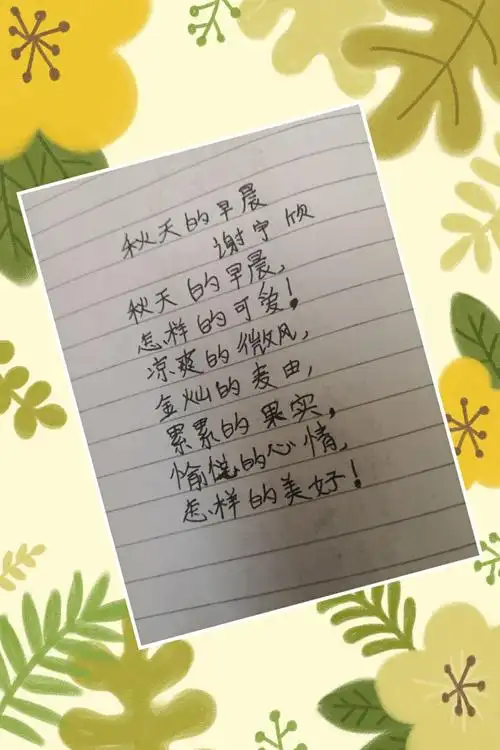 秋天的早晨
谢宇欣
秋天的早晨,
怎样的可爱!
凉爽的微风,
金灿的麦由,
累累的果实,
愉悦的心情,
怎样的美好!